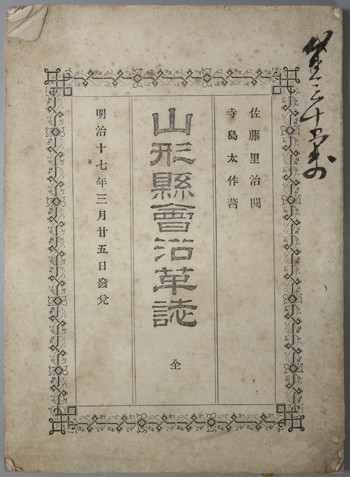 佐藤里治閲
寺島太作著
山形縣會沿革誌
全
明治十七年三月廿五日發兌